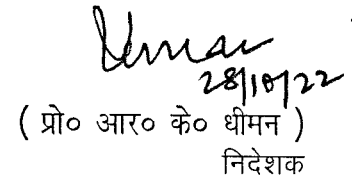 28/10/22
( प्रो० आर० के० धीमन )
निदेशक